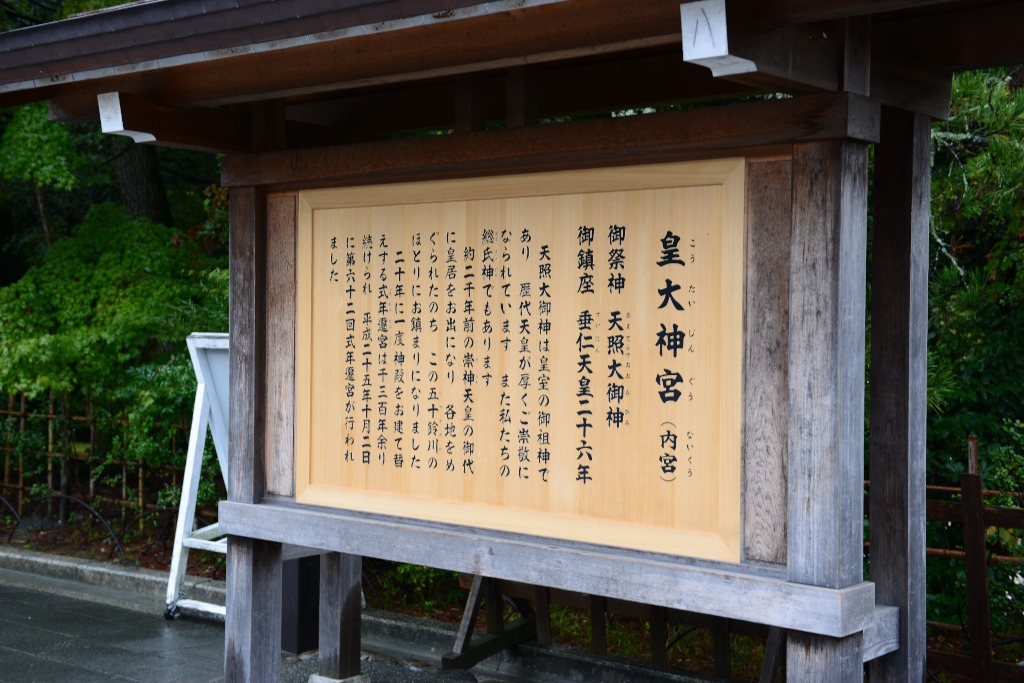 皇大神宮（内宮）
こうたいじんぐう
ないくう
御祭神 天照大御神
あまてらすおおみかみ
御鎮座 垂仁天皇二十六年
すいにん
天照大御神は皇室の御祖神で
あり 歴代天皇が厚くご崇敬に
なられています また私たちの
総氏神でもあります
約二千年前の崇神天皇の御代
に皇居をお出になり 各地をめ
ぐられたのち この五十鈴川の
ほとりにお鎮まりになりました
二十年に一度神殿をお建て替
えする式年遷宮は千三百年余り
続けられ 平成二十五年十月二日
に第六十二回式年遷宮が行われ
ました